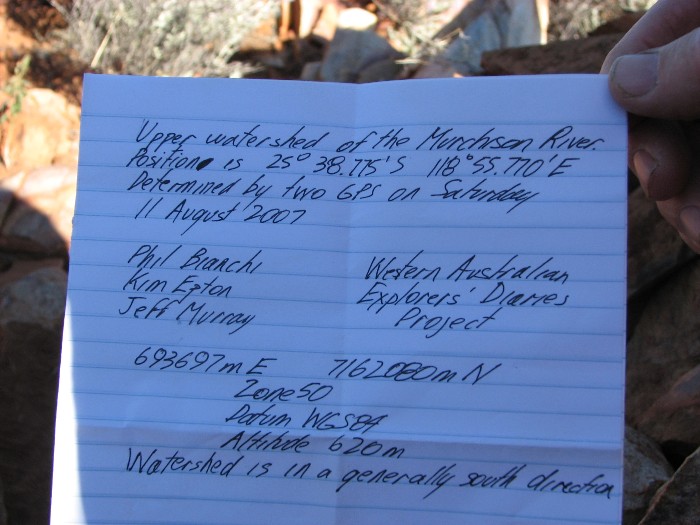 Upper watershed of the Murchison River.
Position is 25° 38.775'S 118° 55.770'E
Determined by two GPS on Saturday
11 August 2007
Phil Bianchi
Kim Epton
Jeff Murray
Western Australian
Explorers' Diaries
Project
693697m E 7162080m N
Zone 50
Datum WGS84
Altitude 620m
Watershed is in a generally south direction